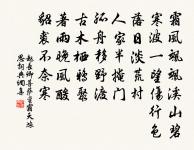 霜風颯颯溪山碧
寒波一望傷行色
落日淡荒村
人家半掩門
孤舟移野渡
古木棲鴉聚
著雨晚風酸
貂裘不奈寒
趙長卿菩薩蠻霜天旅
思詞典